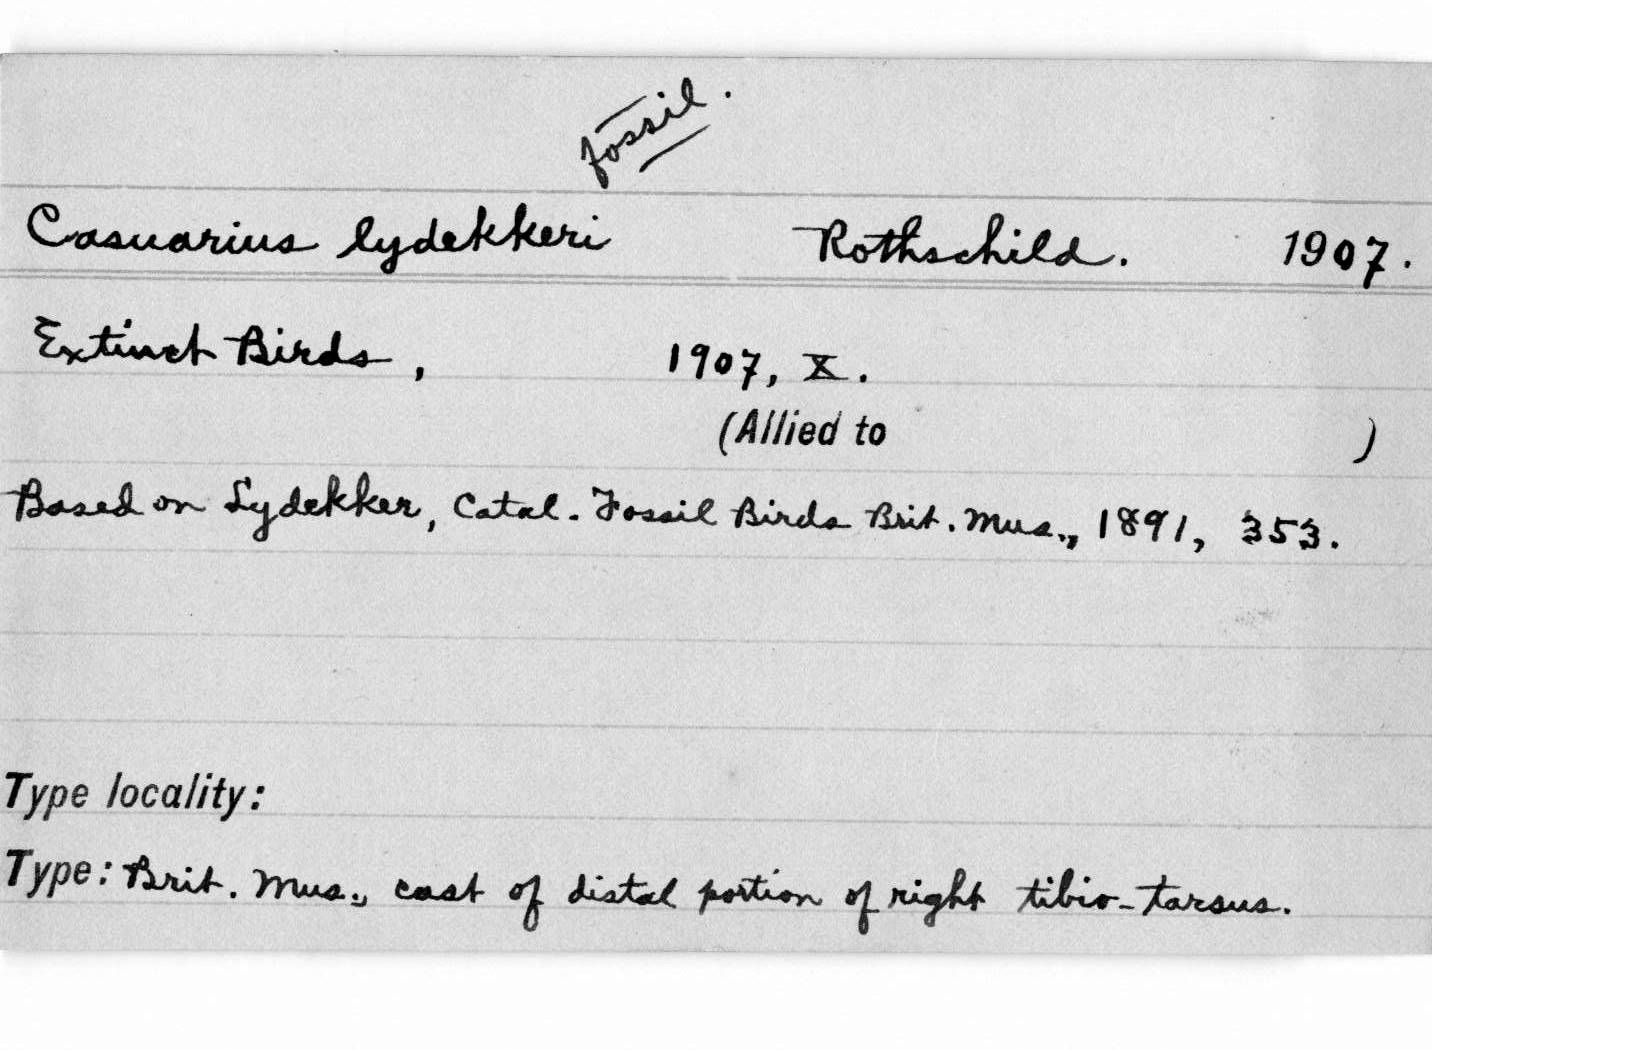 fossil.
Casuarius lydekkeri Rothschild. 1907.
Extinct Birds, 1907, X.
(Allied to )
Based on Lydekker, Catal. Fossil Birds Brit. Mus., 1891, 353.
Type locality:
Type: Brit. Mus., cast of distal portion of right tibio-tarsus.